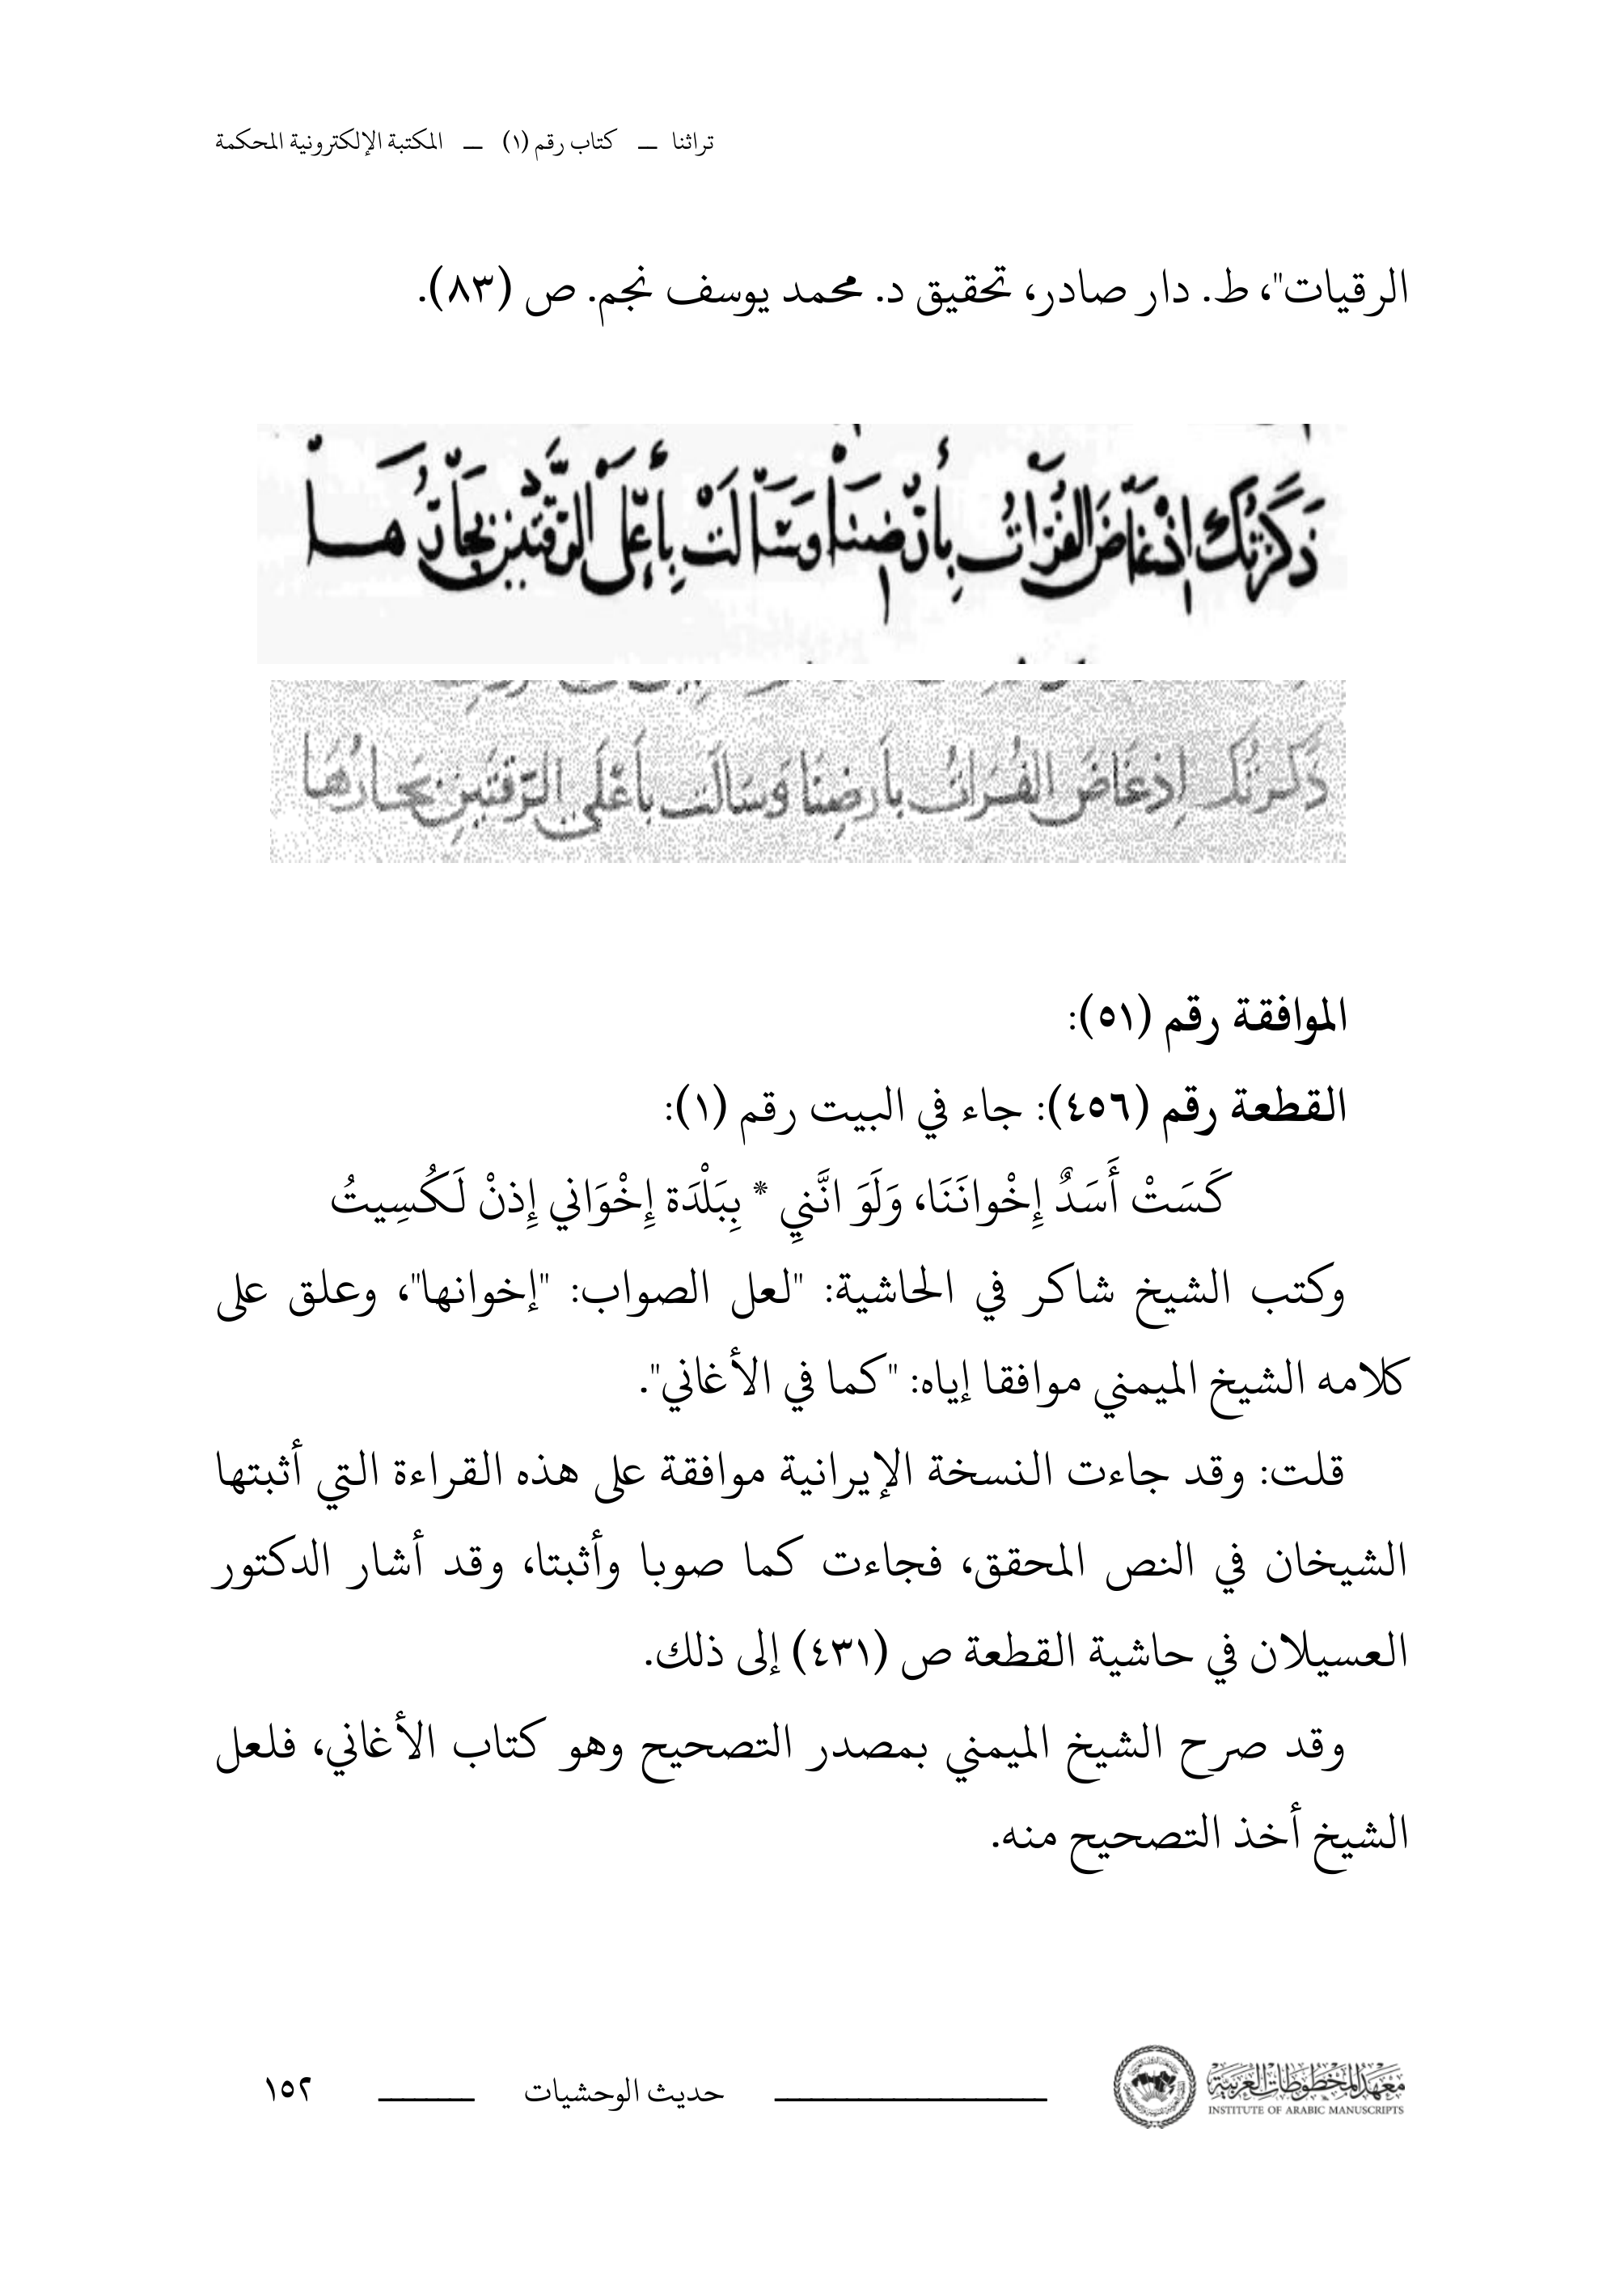 تراثنا — كتاب رقم (١) — المكتبة الإلكترونية المحكمة
الرقيات"، ط. دار صادر، تحقيق د. محمد يوسف نجم. ص (٨٣).
ذَكَرْتُكَ إِذْ غَاضَ الفُرَاتُ بِأَرْضِنَا وَسَالَتْ بِأَعْلَى الرَّقَّتَيْنِ بِحَارُهَا
ذَكَرتُكَ إِذ غَاضَ الفُرَاتُ بِأَرضِنَا وَسَالَت بِأَعْلَى الرَّقَتَينِ بِحَارُهَا
الموافقة رقم (٥١):
القطعة رقم (٤٥٦): جاء في البيت رقم (١):
كَسَتْ أَسَدٌ إِخْوانَنَا، وَلَوَ انَّنيِ * بِبَلْدَة إِخْوَاني إِذنْ لَكُسِيتُ
وكتب الشيخ شاكر في الحاشية: "لعل الصواب: "إخوانها"، وعلق على
كلامه الشيخ الميمني موافقا إياه: "كما في الأغاني".
قلت: وقد جاءت النسخة الإيرانية موافقة على هذه القراءة التي أثبتها
الشيخان في النص المحقق، فجاءت كما صوبا وأثبتا، وقد أشار الدكتور
العسيلان في حاشية القطعة ص (٤٣١) إلى ذلك.
وقد صرح الشيخ الميمني بمصدر التصحيح وهو كتاب الأغاني، فلعل
الشيخ أخذ التصحيح منه.
معهد المخطوطات العربية
INSTITUTE OF ARABIC MANUSCRIPTS
حديث الوحشيات
١٥٢